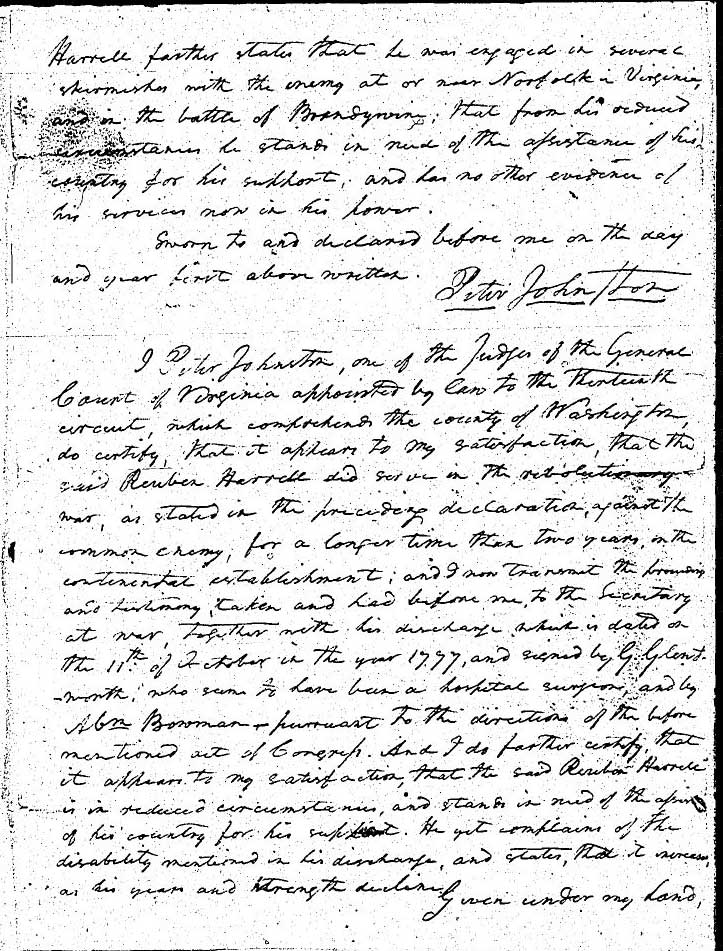 Harrell farther states that he was engaged in several
skirmishes with the enemy at or near Norfolk in Virginia,
and in the battle of Brandywine; that from his reduced
circumstances he stands in need of the assistance of his
country for his support; and has no other evidence of
his services now in his power.
Sworn to and declared before me on the day
and year first above written.
Peter Johnston
I Peter Johnston, one of the Judges of the General
Court of Virginia appointed by law to the thirteenth
circuit, which comprehends the county of Washington,
do certify, that it appears to my satisfaction, that the
said Reuben Harrell did serve in the revolutionary
war, as stated in the preceding declaration, against the
common enemy, for a longer time than two years, on the
continental establishment; and I now transmit the proceedings
and testimony, taken and had before me, to the Secretary
at war, together with his discharge which is dated on
the 11th of October in the year 1777, and signed by G. Glent-
-worth, who seems to have been a hospital surgeon, and by
Abm Bowman pursuant to the directions of the before
mentioned act of Congress. And I do farther certify, that
it appears to my satisfaction, that the said Reuben Harrell
is in reduced circumstances, and stands in need of the
of his country for his support. He yet complains of the
disability mentioned in his discharge, and states, that it increases,
as his years and strength decline. Given under my hand,